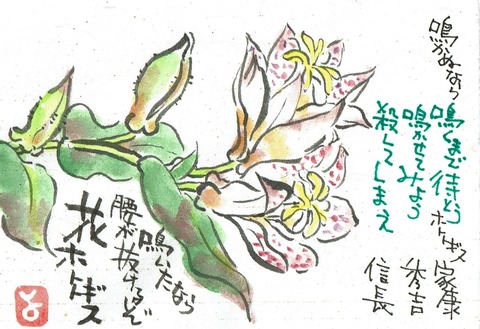 鳴かぬなら
鳴くまで待とう
鳴かせてみよう
殺してしまえ
ホトトギス
家康
秀吉
信長
鳴いたなら
腰が抜けるぞ
花ホトトギス